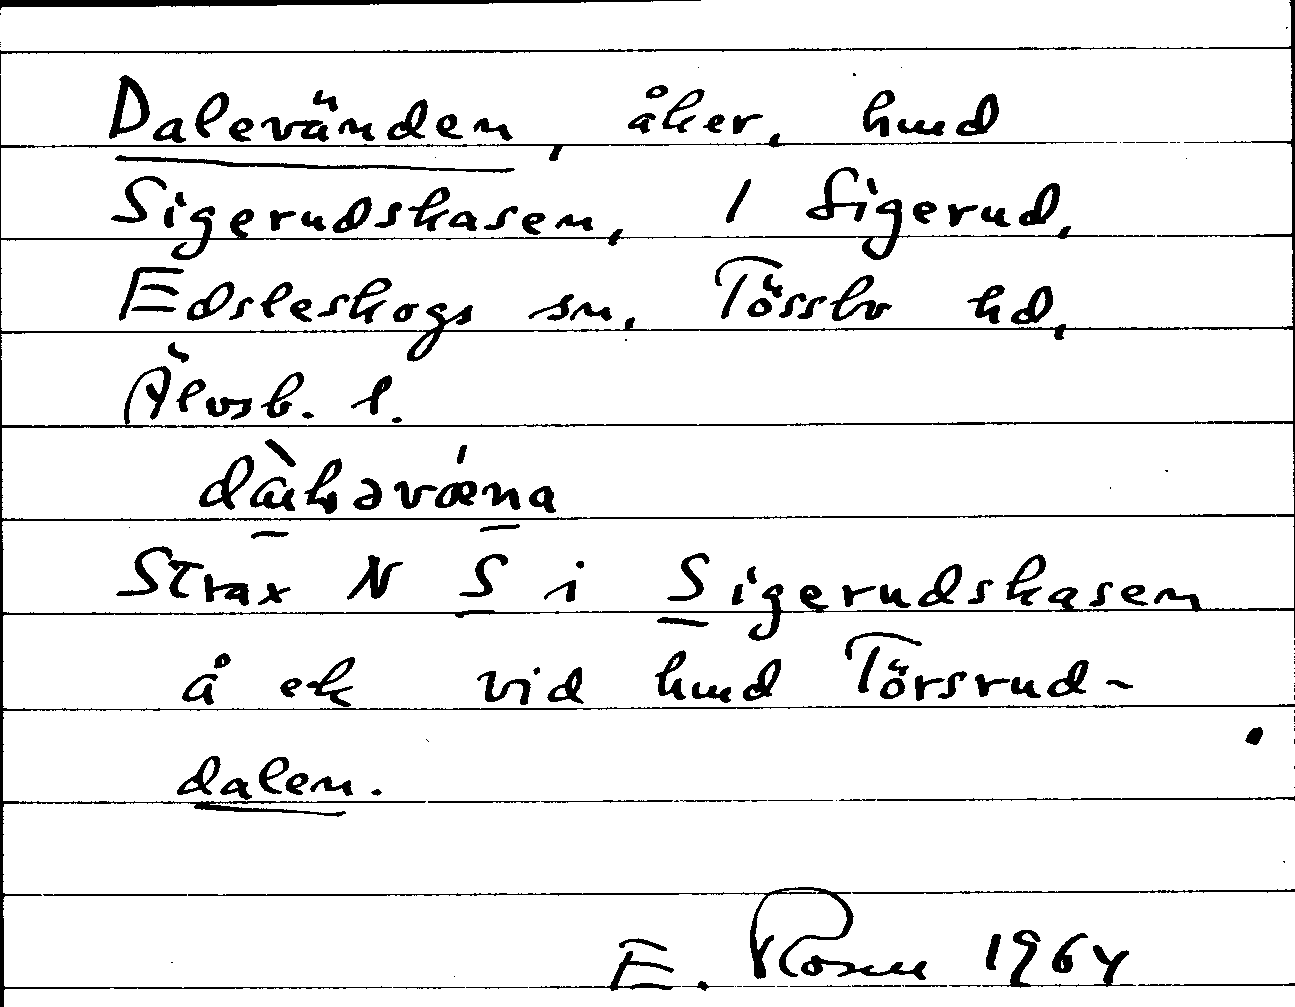 Dalevänden, åker, hmd
Sigerudskasen, 1 Sigerud,
Edsleskogs sn, Tössbo hd,
Älvsb. l.
Strax N S i Sigerudskasen
å ek vid hmd Törsrud-
dalen.
E. Rosen 1964